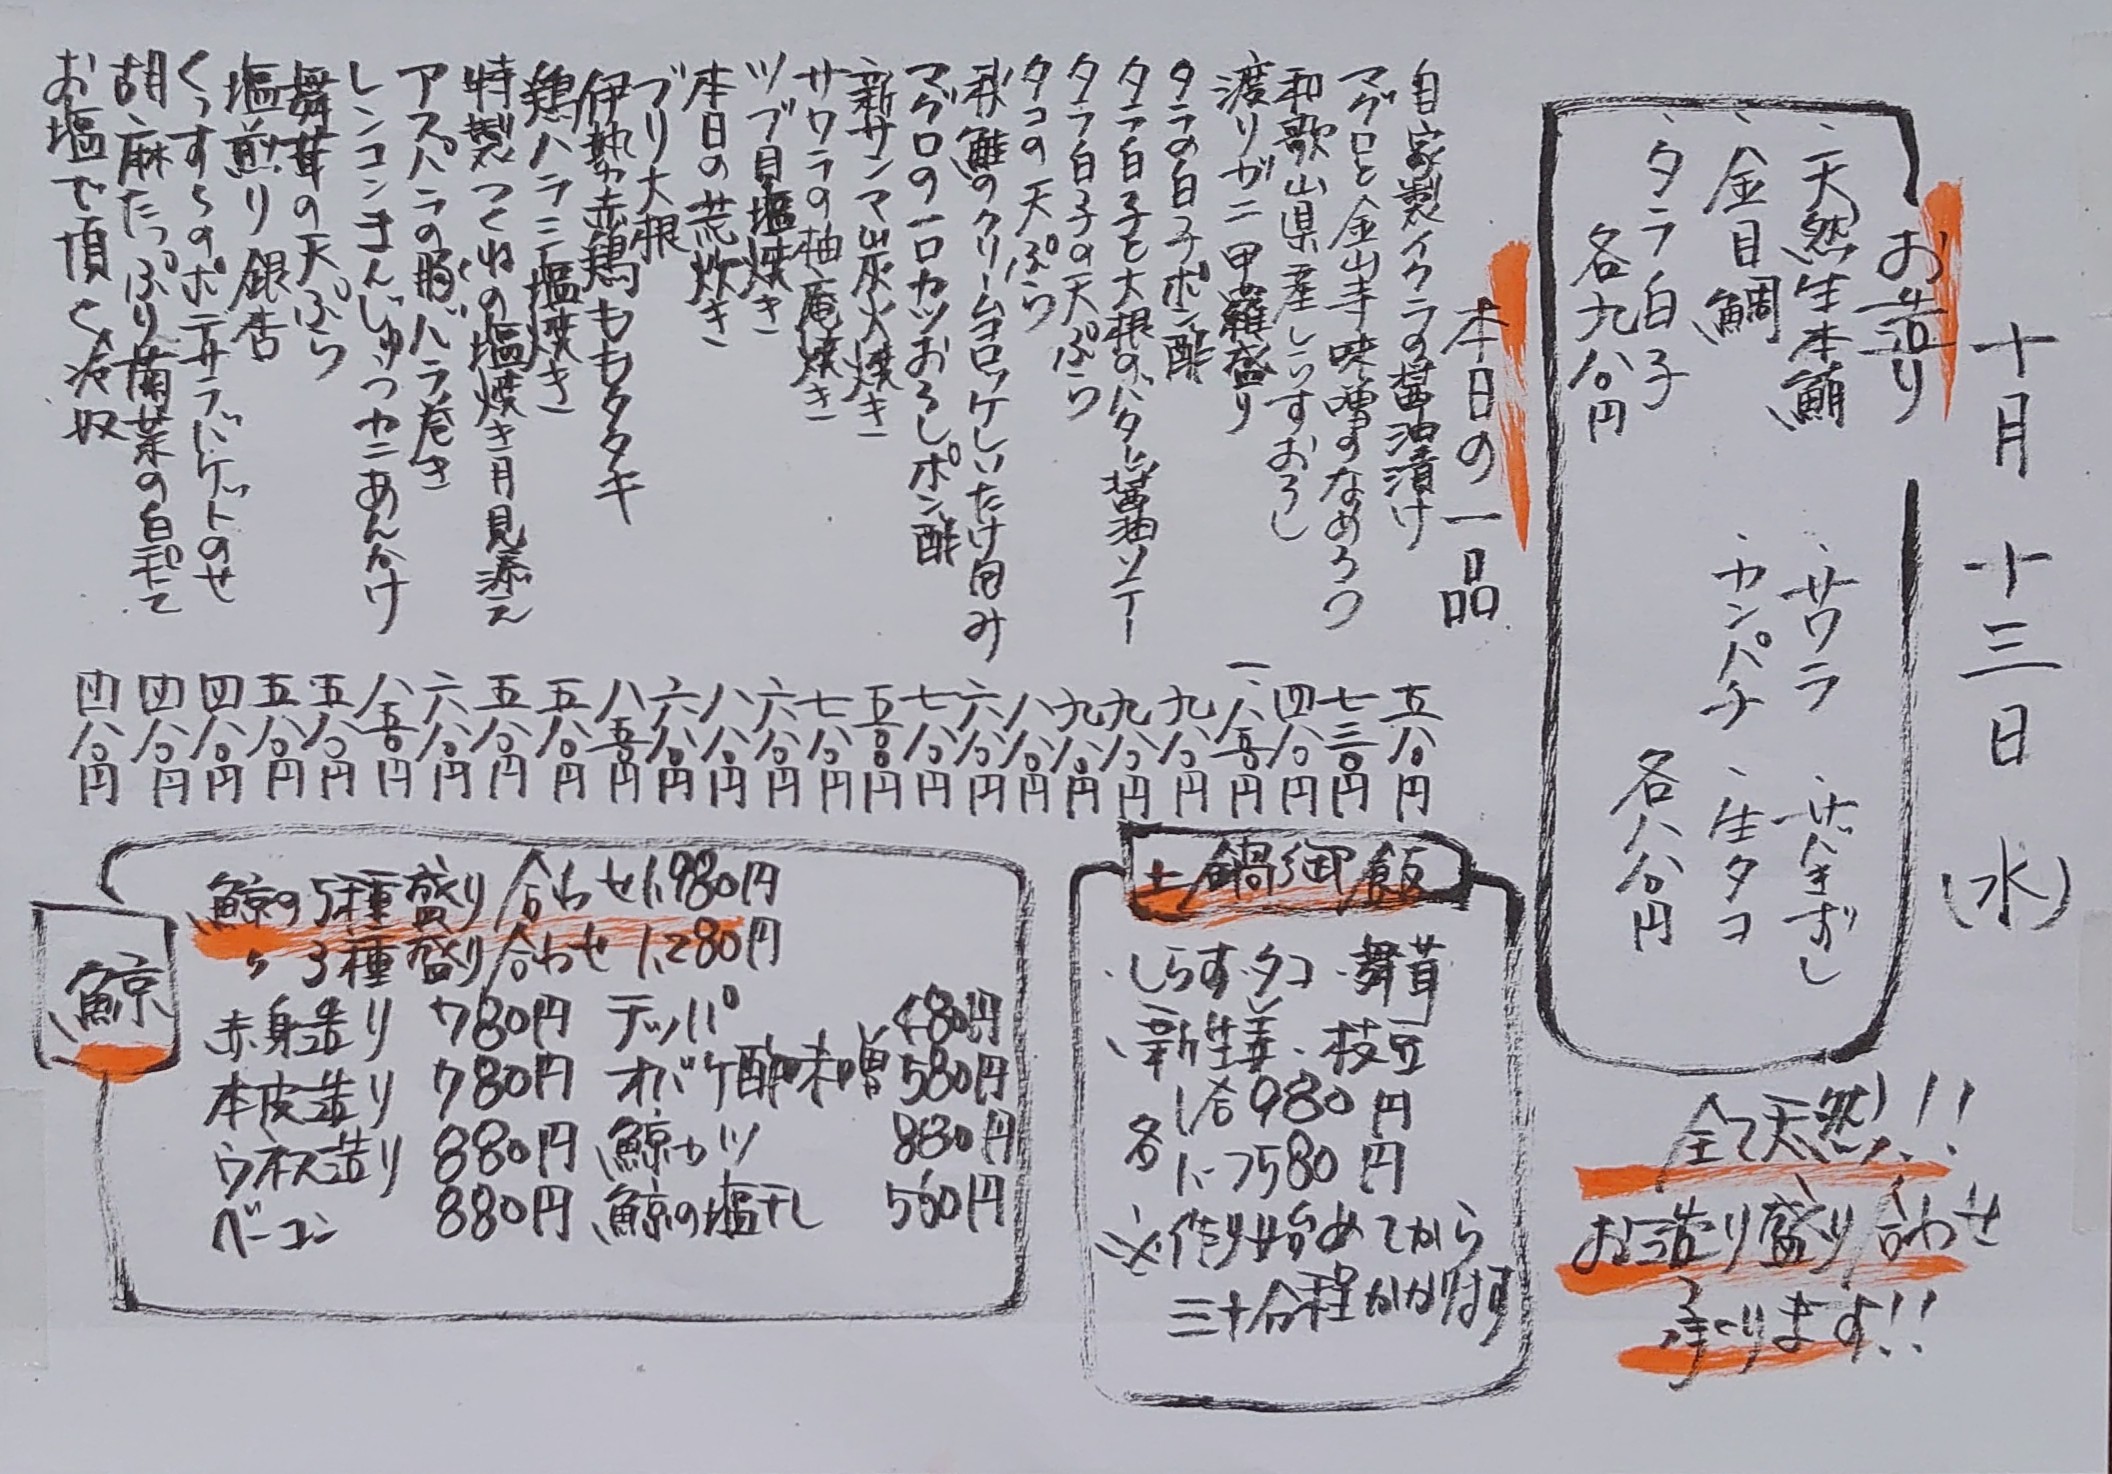 十月十三日(水)
お造り
、天然生本鮪
、金目鯛
、タラ白子
各九八〇円
、サワラ
、カンパチ
各八八〇円
、サバきずし
、生タコ
全て天然!!
お造り盛り合わせ
承ります!!
本日の一品
自家製イクラの醤油漬け 五八〇円
マグロと金山寺味噌のなめろう 七三〇円
和歌山県産しらすおろし 四八〇円
渡りガニ甲羅盛り 一、八五〇円
タラの白子ポン酢 九八〇円
タラ白子と大根のバター醤油ソテー 九八〇円
タラ白子の天ぷら 九八〇円
タコの天ぷら 八八〇円
秋鮭のクリームコロッケしいたけ包み 六八〇円
マグロの一口カツおろしポン酢 七八〇円
新サンマ炭火焼き 五〇〇円
サワラの柚庵焼き 七八〇円
ツブ貝塩焼き 六八〇円
本日の荒炊き 八八〇円
ブリ大根 六八〇円
伊勢赤鶏ももタタキ 八五〇円
鶏ハラミ塩焼き 五八〇円
特製つくねの塩焼き月見添え 五八〇円
アスパラの豚バラ巻き 六八〇円
レンコンまんじゅうカニあんかけ 八五〇円
舞茸の天ぷら 五八〇円
塩煎り銀杏 五八〇円
くんすうのポテサラバゲットのせ 四八〇円
胡麻たっぷり菊菜の白和え 四八〇円
お塩で頂く冷奴 四八〇円
土鍋御飯
・しらす・タコ・舞茸
、新生姜、枝豆
各
1合980円
1.5合1580円
※作り始めてから
三十分程かかります
鯨
鯨の5種盛り合わせ1,980円
〃3種盛り合わせ1,280円
赤身造り 780円 テッパ 480円
本皮造り 780円 オバケ酢味噌 580円
ウネス造り 880円 鯨カツ 880円
ベーコン 880円 鯨の塩干し 580円